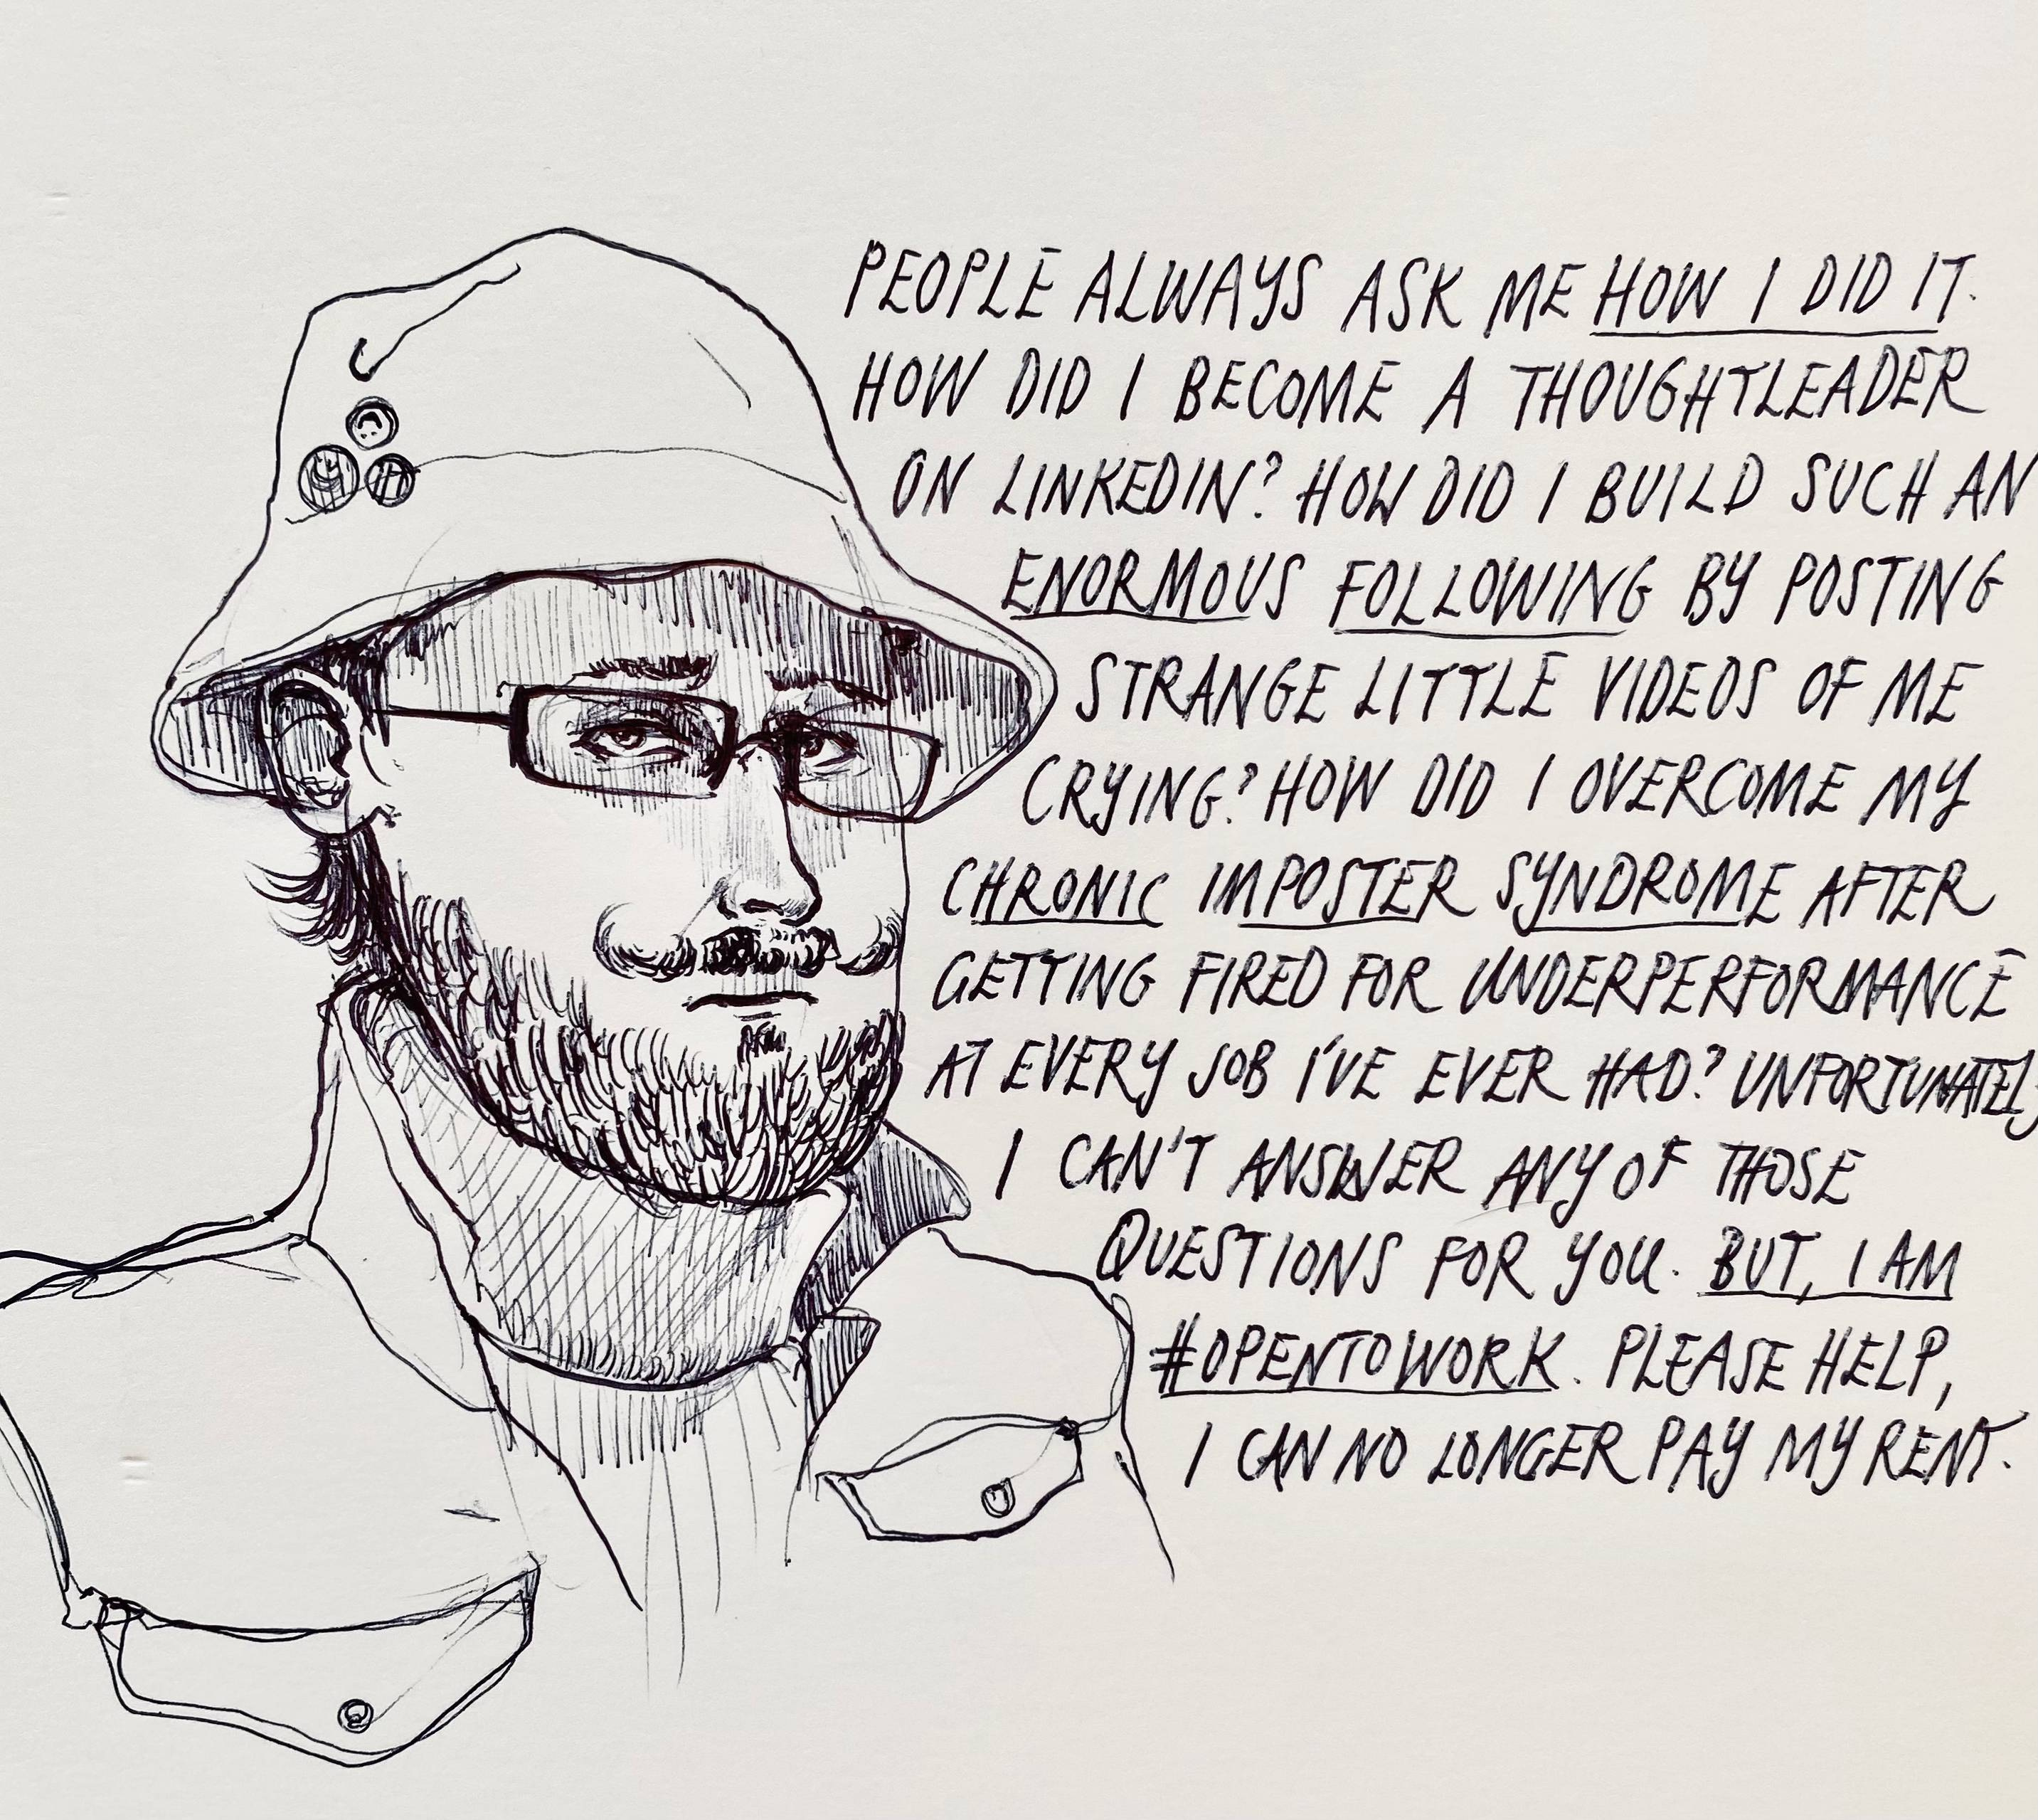 PEOPLE ALWAYS ASK ME HOW I DID IT.
HOW DID I BECOME A THOUGHTLEADER
ON LINKEDIN? HOW DID I BUILD SUCH AN
ENORMOUS FOLLOWING BY POSTING
STRANGE LITTLE VIDEOS OF ME
CRYING? HOW DID I OVERCOME MY
CHRONIC IMPOSTER SYNDROME AFTER
GETTING FIRED FOR UNDERPERFORMANCE
AT EVERY JOB I'VE EVER HAD? UNFORTUNATELY
I CAN'T ANSWER ANY OF THOSE
QUESTIONS FOR YOU. BUT, I AM
#OPENTOWORK. PLEASE HELP,
I CAN NO LONGER PAY MY RENT.